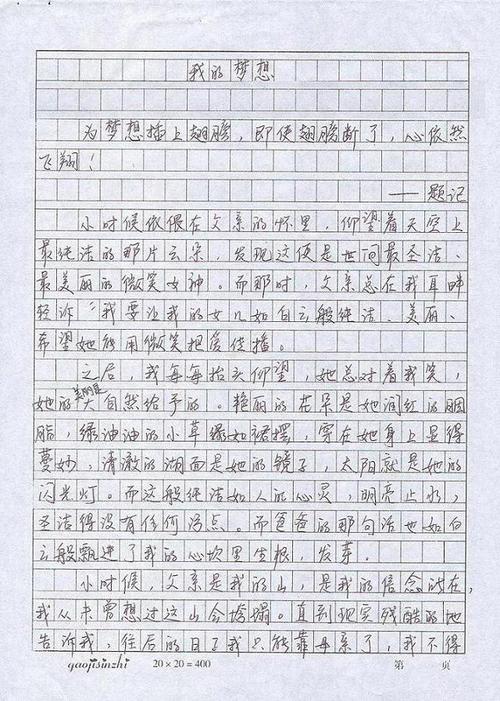 我的梦想
为梦想插上翅膀，即使翅膀断了，心依然
飞翔！
——题记
小时候依偎在父亲的怀里，仰望着天空上
最纯洁的那片云朵，发现这便是世间最圣洁、
最美丽的微笑女神。而那时，父亲总在我耳畔
轻诉“我要让我的女儿如白云般纯洁、美丽、
希望她能用微笑把爱传播。
之后，我每每抬头仰望，她总对着我笑，
她的美丽是大自然给予的。艳丽的花朵是她润红的胭
脂，绿油油的小草绿如裙摆，穿在她身上显得
曼妙，清澈的湖面是她的镜子，太阳就是她的
闪光灯。而这般纯洁如人的心灵，明亮止水，
圣洁得没有任何污点。而爸爸的那句话也如白
云般飘进了我的心坎里生根，发芽.
小时候，父亲是我的山，是我的信念所在，
我从未曾想过这山会垮塌。直到现实残酷的地
告诉我，往后的日子我只能靠母亲了，我不得
gaojisinzhi 20×20=400 第 页